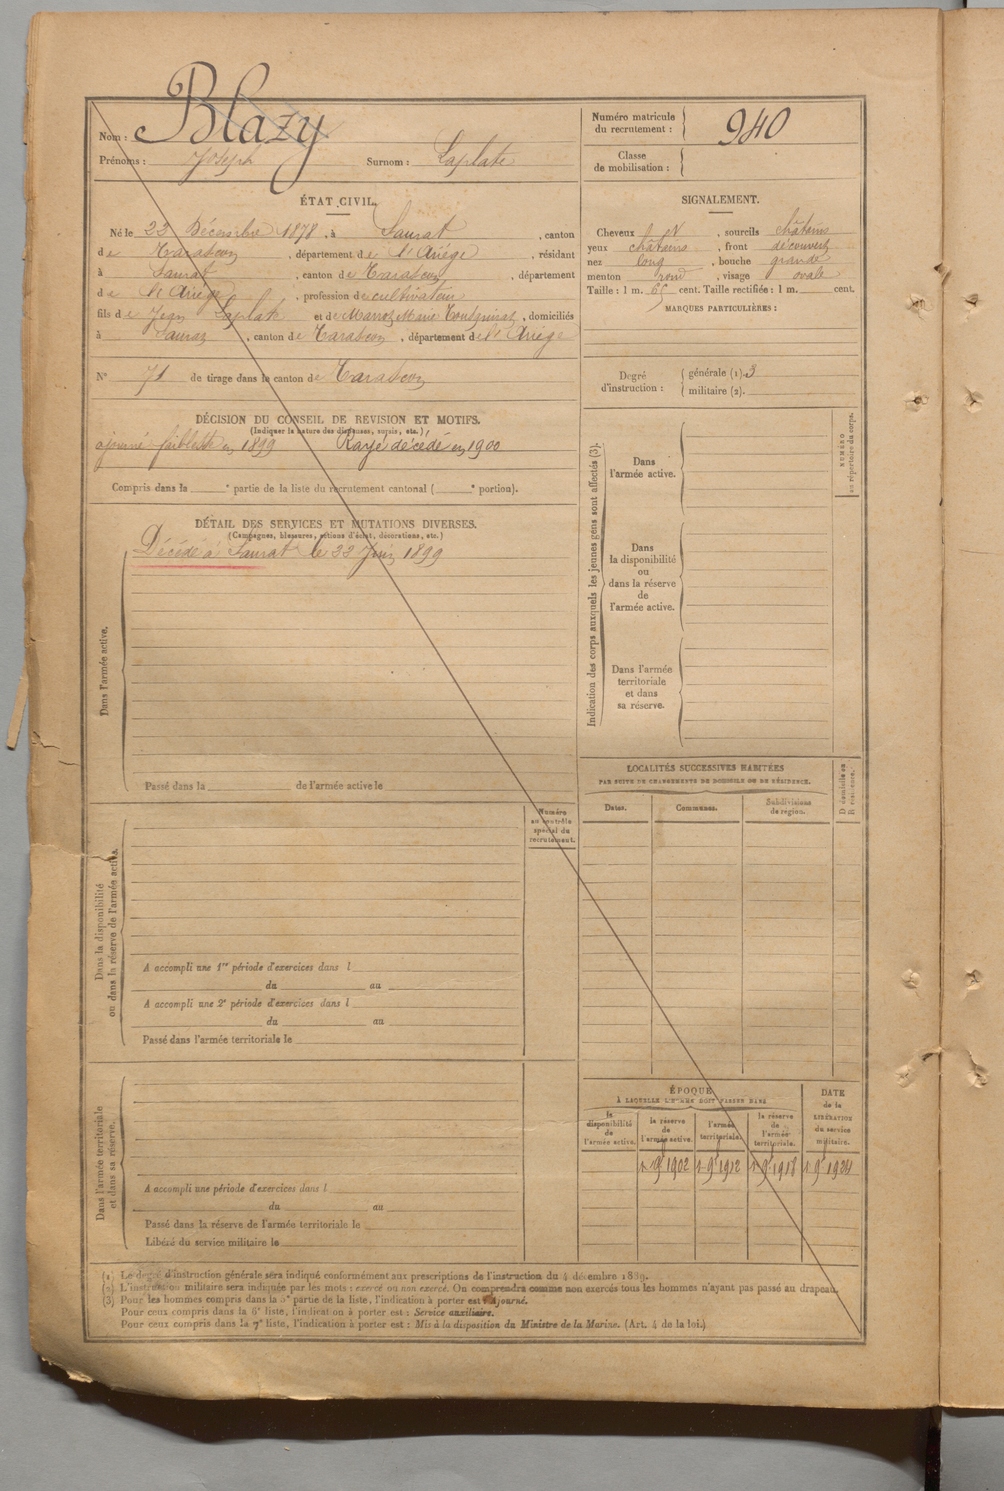 Nom : Blazy
Prénoms : Joseph Surnom : Laplate
Numéro matricule
du recrutement : 940
Classe
de mobilisation :
ÉTAT CIVIL.
Né le 22 Décembre 1878, à Saurat, canton
de Tarascon, département de l'Ariège, résidant
à Saurat, canton de Tarascon, département
de l'Ariège, profession de cultivateur
fils de Jean Laplate et de Marie, domiciliés
à Saurat, canton de Tarascon, département de l'Ariège
N° 71 de tirage dans le canton de Tarascon
SIGNALEMENT.
Cheveux N, sourcils châtains
yeux châtains, front découvert
nez long, bouche grande
menton rond, visage ovale
Taille : 1 m. 65 cent. Taille rectifiée : 1 m. cent.
MARQUES PARTICULIÈRES :
Degré
d'instruction :
générale (1). 3
militaire (2).
DÉCISION DU CONSEIL DE REVISION ET MOTIFS.
(Indiquer la nature des dispenses, sursis, etc.)
ajourné faiblesse en 1899 Rayé décédé en 1900
Compris dans la e partie de la liste du recrutement cantonal ( e portion).
DÉTAIL DES SERVICES ET MUTATIONS DIVERSES.
(Campagnes, blessures, actions d'éclat, décorations, etc.)
Décédé à Saurat le 22 Juin 1899
Dans l'armée active.
Passé dans la de l'armée active le
Indication des corps auxquels les jeunes gens sont affectés (3).
NUMÉRO
au répertoire du corps.
Dans
l'armée active.
Dans
la disponibilité
ou
dans la réserve
de
l'armée active.
Dans l'armée
territoriale
et dans
sa réserve.
LOCALITÉS SUCCESSIVES HABITÉES
PAR SUITE DE CHANGEMENTS DE DOMICILE OU DE RÉSIDENCE.
Dates.
Communes.
Subdivisions
de région.
D domicile ou
R résidence.
Numéro
au contrôle
spécial du
recrutement.
Dans la disponibilité
ou dans la réserve de l'armée active.
A accompli une 1re période d'exercices dans l
du au
A accompli une 2e période d'exercices dans l
du au
Passé dans l'armée territoriale le
Dans l'armée territoriale
et dans sa réserve.
A accompli une période d'exercices dans l
du au
Passé dans la réserve de l'armée territoriale le
Libéré du service militaire le
ÉPOQUE
À LAQUELLE L'HOMME DOIT PASSER DANS
la
disponibilité
de
l'armée active.
la réserve
de
l'armée active.
l'armée
territoriale.
la réserve
de
l'armée
territoriale.
DATE
de la
LIBÉRATION
du service
militaire.
1902 1912 1918 1924
(1) Le degré d'instruction générale sera indiqué conformément aux prescriptions de l'instruction du 4 décembre 1889.
(2) L'instruction militaire sera indiquée par les mots : exercé ou non exercé. On comprendra comme non exercés tous les hommes n'ayant pas passé au drapeau.
(3) Pour les hommes compris dans la 5e partie de la liste, l'indication à porter est : Ajourné.
Pour ceux compris dans la 6e liste, l'indication à porter est : Service auxiliaire.
Pour ceux compris dans la 7e liste, l'indication à porter est : Mis à la disposition du Ministre de la Marine. (Art. 4 de la loi.)